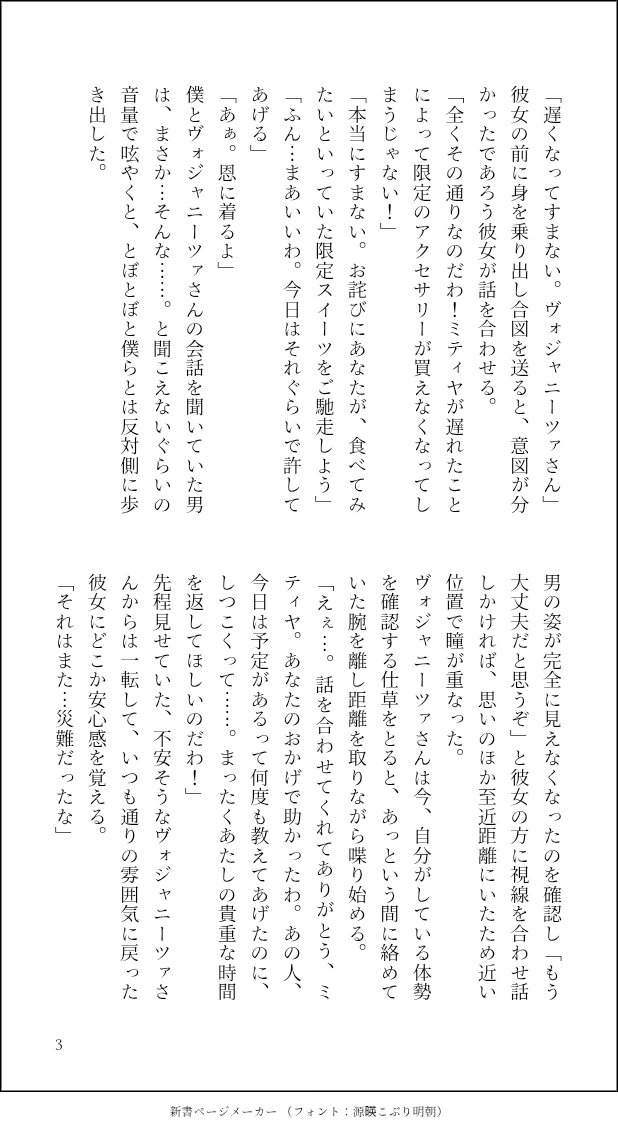 「遅くなってすまない。ヴォジャニーツァさん」
彼女の前に身を乗り出し合図を送ると、意図が分
かったであろう彼女が話を合わせる。
「全くその通りなのだわ！ミティヤが遅れたこと
によって限定のアクセサリーが買えなくなってし
まうじゃない！」
「本当にすまない。お詫びにあなたが、食べてみ
たいといっていた限定スイーツをご馳走しよう」
「ふん…まあいいわ。今日はそれぐらいで許して
あげる」
「あぁ。恩に着るよ」
僕とヴォジャニーツァさんの会話を聞いていた男
は、まさか…そんな……。と聞こえないぐらいの
音量で呟やくと、とぼとぼと僕らとは反対側に歩
き出した。
男の姿が完全に見えなくなったのを確認し「もう
大丈夫だと思うぞ」と彼女の方に視線を合わせ話
しかければ、思いのほか至近距離にいたため近い
位置で瞳が重なった。
ヴォジャニーツァさんは今、自分がしている体勢
を確認する仕草をとると、あっという間に絡めて
いた腕を離し距離を取りながら喋り始める。
「えぇ…。話を合わせてくれてありがとう、ミ
ティヤ。あなたのおかげで助かったわ。あの人、
今日は予定があるって何度も教えてあげたのに、
しつこくって……。まったくあたしの貴重な時間
を返してほしいのだわ！」
先程見せていた、不安そうなヴォジャニーツァさ
んからは一転して、いつも通りの雰囲気に戻った
彼女にどこか安心感を覚える。
「それはまた…災難だったな」
3
新書ページメーカー（フォント：源暎こぶり明朝）